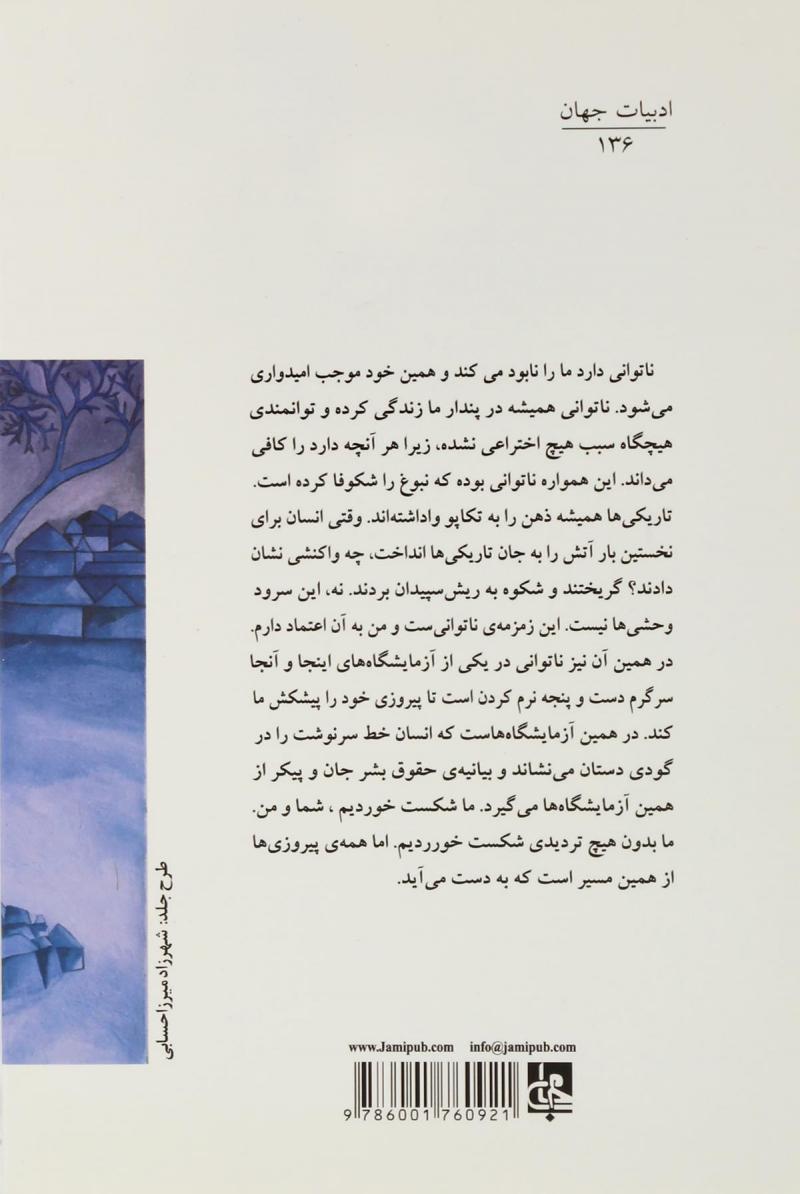 ادبیات جهان
۱۳۶
ناتوانی دارد ما را نابود می کند و همین خود موجب امیدواری
می‌شود. ناتوانی همیشه در پندار ما زندگی کرده و توانمندی
هیچگاه سبب هیچ اختراعی نشده، زیرا هر آنچه دارد را کافی
می‌داند. این همواره ناتوانی بوده که نبوغ را شکوفا کرده است.
تاریکی‌ها همیشه ذهن را به تکاپو واداشته‌اند. وقتی انسان برای
نخستین بار آتش را به جان تاریکی‌ها انداخت، چه واکنشی نشان
دادند؟ گریختند و شکوه به ریش‌سپیدان بردند. نه، این سرود
وحشی‌ها نیست. این زمزمه‌ی ناتوانی‌ست و من به آن اعتماد دارم.
در همین آن نیز ناتوانی در یکی از آزمایشگاه‌های اینجا و آنجا
سرگرم دست و پنجه نرم کردن است تا پیروزی خود را پیشکش ما
کند. در همین آزمایشگاه‌هاست که انسان خط سرنوشت را در
گودی دستان می‌نشاند و بیانیه‌ی حقوق بشر جان و پیکر از
همین آزمایشگاه‌ها می‌گیرد. ما شکست خوردیم ، شما و من.
ما بدون هیچ تردیدی شکست خورردیم. اما همه‌ی پیروزی‌ها
از همین مسیر است که به دست می‌آید.
طرح جلد: شهرزاد میرزاحسابی
www.Jamipub.com info@jamipub.com
9 786001 760921